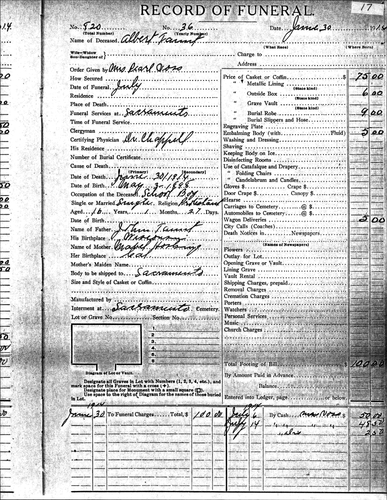 RECORD OF FUNERAL
17
No. 820 No. 36 Date June 30 1914
(Total Number) (Yearly Number)
Name of Deceased Albert
(What Race) (Where Born)
Charge to
Address
Order Given by Mrs. Pearl
How Secured
Date of Funeral July
Residence
Place of Death
Funeral Services at Sacramento
Time of Funeral Service
Clergyman
Certifying Physician Dr. Chappell
His Residence
Number of Burial Certificate
Cause of Death
(Primary) (Secondary)
Date of Death June 30/1914
Date of Birth May 3-1898
Occupation of the Deceased School Boy
Single or Married Single Religion Protestant
Aged 16 Years 1 Months 27 Days
Date of Birth
Name of Father John
His Birthplace Wisconsin
Name of Mother Mabel
Her Birthplace Cal
Mother's Maiden Name
Body to be shipped to Sacramento
Size and Style of Casket or Coffin
Manufactured by
Interment at Sacramento Cemetery.
Lot or Grave No. Section No.
Diagram of Lot or Vault.
Designate all Graves in Lot with Numbers (1, 2, 3, 4, etc.), and
mark space for this Funeral with a cross (+).
Designate place for Monument with a small square
Use space to the right of Diagram for the names of those buried
in Lot.
1914
June 30 To Funeral Charges Total, $ 100 00
Price of Casket or Coffin $ 75 00
" " Metallic Lining
(State kind)
" " Outside Box 6 00
" " Grave Vault
(State kind)
" " Burial Robe 9 00
" " Burial Slippers and Hose
Engraving Plate
Embalming Body (with Fluid) 5 00
Washing and Dressing
Shaving
Keeping Body on Ice
Disinfecting Rooms
Use of Catafalque and Drapery
" " Folding Chairs
" " Candelabrum and Candles
Gloves $ Crape $
Door Crape $ Canopy $
Hearse
Carriages to Cemetery @ $
Automobiles to Cemetery @ $
Wagon Deliveries 5 00
City Calls (Coaches)
Death Notices in Newspapers
(Names of Newspapers)
Flowers
Outlay for Lot
Opening Grave or Vault
Lining Grave
Vault Rental
Shipping Charges, prepaid
Removal Charges
Cremation Charges
Porters
Watchers
Personal Services
Music
Church Charges
Total Footing of Bill $ 100 00
By Amount Paid in Advance
Balance
Entered into Ledger, page or below.
July 6 By Cash $ 50 00
July 14